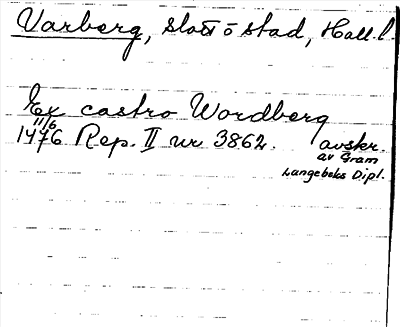 Varberg, slott o stad, Hall.l.
Ex castro Wordberg
11/6
1476 Rep. II nr 3862. avskr.
av Gram
Langebeks Dipl.